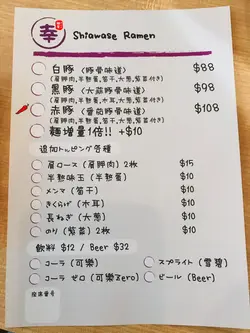 幸 Shiawase Ramen
白豚 (豚骨味道) $88
(肩脾肉,半熟蛋,笛干,大蔥,紫菜付き)
黒豚 (大蒜豚骨味道) $98
(肩脾肉,半熟蛋,木耳,大蔥,紫菜付き)
赤豚 (番茄豚骨味道) $108
(肩脾肉,半熟蛋,笛干,大蔥,紫菜付き)
麵增量1倍!! +$10
追加トッピング各種
肩ロース (肩脾肉) 2枚 $15
半熟味玉 (半熟蛋) $10
メンマ (笛干) $10
きくらげ (木耳) $10
長ねぎ (大蔥) $10
のり (紫菜) 2枚 $10
飲料 $12 / Beer $32
コーラ (可樂) スプライト (雪碧)
コーラ ゼロ (可樂Zero) ビール (Beer)
座席番号